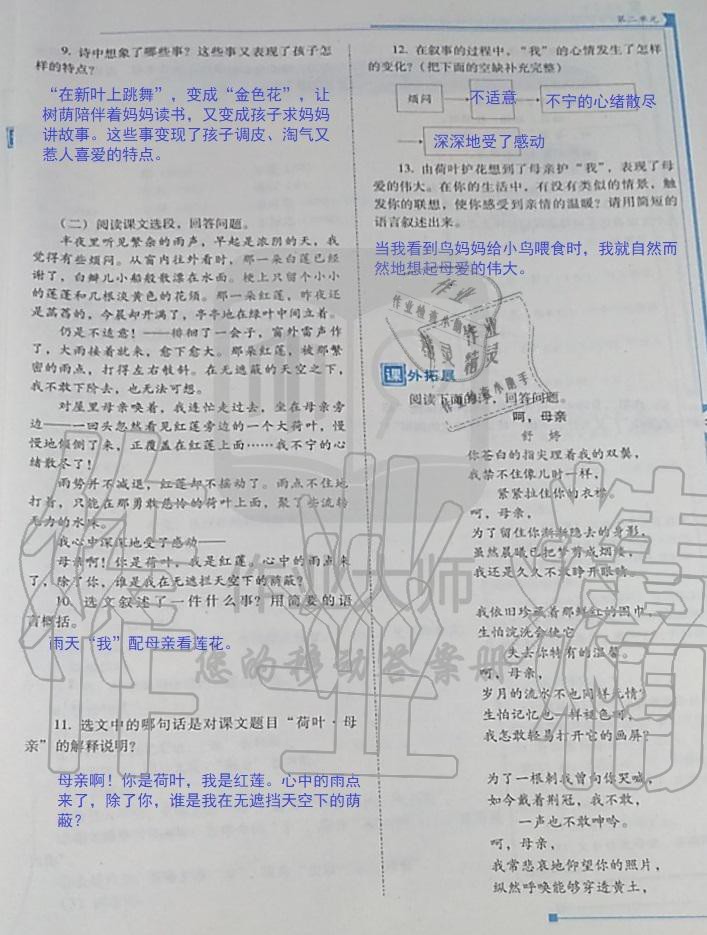 第二单元
9. 诗中想象了哪些事？这些事又表现了孩子怎
样的特点？
“在新叶上跳舞”，变成“金色花”，让
树荫陪伴着妈妈读书，又变成孩子求妈妈
讲故事。这些事变现了孩子调皮、淘气又
惹人喜爱的特点。
（二）阅读课文选段，回答问题。
半夜里听见繁杂的雨声，早起是浓阴的天，我
觉得有些烦闷。从窗内往外看时，那一朵白莲已经
谢了，白瓣儿小船般散漂在水面。梗上只留个小小
的莲蓬和几根淡黄色的花须。那一朵红莲，昨夜还
是菡萏的，今晨却开满了，亭亭地在绿叶中间立着。
仍是不适意！——徘徊了一会子，窗外雷声作
了，大雨接着就来，愈下愈大。那朵红莲，被那繁
密的雨点，打得左右攲斜。在无遮蔽的天空之下，
我不敢下阶去，也无法可想。
对屋里母亲唤着，我连忙走过去，坐在母亲旁
边——一回头忽然看见红莲旁边的一个大荷叶，慢
慢地倾侧了来，正覆盖在红莲上面……我不宁的心
绪散尽了！
雨势并不减退，红莲却不摇动了。雨点不住地
打着，只能在那勇敢慈怜的荷叶上面，聚了些流转
无力的水珠。
我心中深深地受了感动——
母亲啊！你是荷叶，我是红莲。心中的雨点来
了，除了你，谁是我在无遮拦天空下的荫蔽？
10. 选文叙述了一件什么事？用简要的语
言概括。
雨天“我”配母亲看莲花。
11. 选文中的哪句话是对课文题目“荷叶·母
亲”的解释说明？
母亲啊！你是荷叶，我是红莲。心中的雨点
来了，除了你，谁是我在无遮挡天空下的荫
蔽？
12. 在叙事的过程中，“我”的心情发生了怎样
的变化？（把下面的空缺补充完整）
烦闷 不适意 不宁的心绪散尽
深深地受了感动
13. 由荷叶护花想到了母亲护“我”，表现了母
爱的伟大。在你的生活中，有没有类似的情景，触
发你的联想，使你感受到亲情的温暖？请用简短的
语言叙述出来。
当我看到鸟妈妈给小鸟喂食时，我就自然而
然地想起母爱的伟大。
课外拓展
阅读下面的诗，回答问题。
呵，母亲
舒 婷
你苍白的指尖理着我的双鬓，
我禁不住像儿时一样，
紧紧拉住你的衣襟。
呵，母亲，
为了留住你渐渐隐去的身影，
虽然晨曦已把梦剪成烟缕，
我还是久久不敢睁开眼睛。
我依旧珍藏着那鲜红的围巾，
生怕浣洗会使它
失去你特有的温馨。
呵，母亲，
岁月的流水不也同样无情？
生怕记忆也一样褪色啊，
我怎敢轻易打开它的画屏？
为了一根刺我曾向你哭喊，
如今戴着荆冠，我不敢，
一声也不敢呻吟。
呵，母亲，
我常悲哀地仰望你的照片，
纵然呼唤能够穿透黄土，
作业大师
您的移动答案册
作业精灵